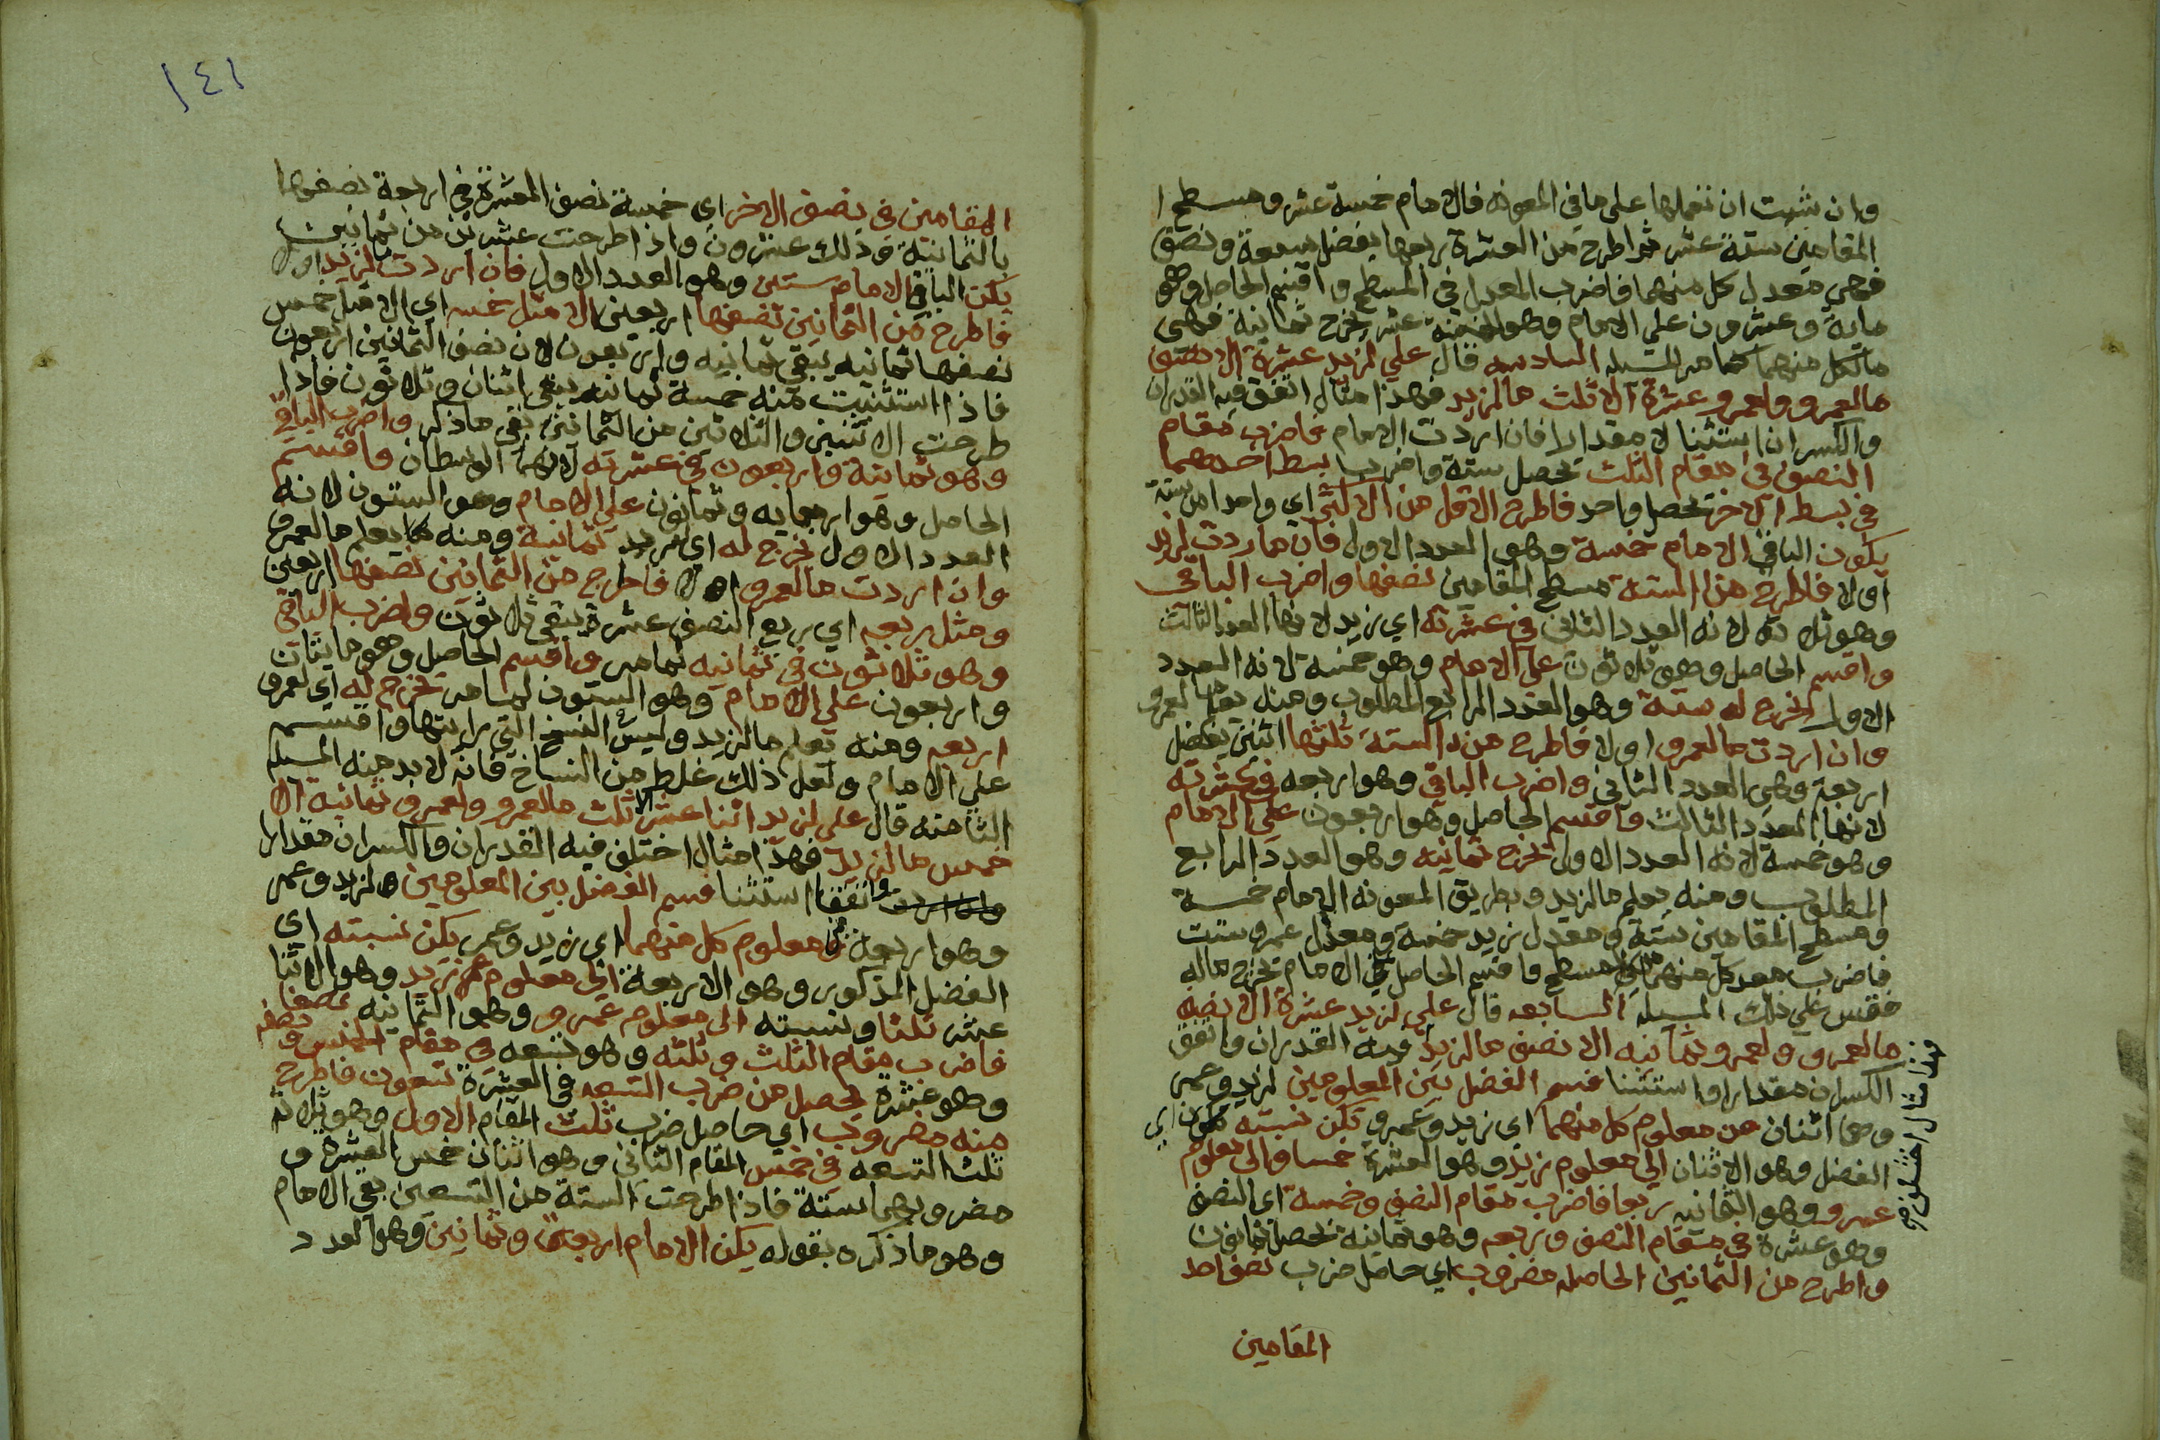 وان شئت ان تعملها على ما في المعونه فالامام خمسة عشر ومسطح ا
المقامين ستة عشر ثم اطرح من العشرة ربعها يفضل سبعة ونصف
فهي معدل كل منهما فاضرب المعدل في المسطح واقسم الحاصل وهو
مايه وعشرون على الامام وهو خمسة عشر يخرج ثمانية فهي
ما لكل منهما كما مر المسيله السادسه قال علي لزيد عشرة الا نصف
ما لعمرو ولعمرو عشرة الا ثلث ما لزيد فهذا مثال اتفق فيه القدران
والكسران استثنا لا مقدارا فان اردت الامام فاضرب مقام
النصف في مقام الثلث تحصل ستة واضرب بسط احدهما
في بسط الاخر تحصل واحد فاطرح الاقل من الاكثر اي واحدا من ستة
يكون الباقي الامام خمسة وهو العدد الاول فان اردت لزيد
اولا فاطرح من الستة مسطح المقامين نصفها واضرب الباقي
وهو ثلاثة لانه العدد الثاني في عشرته اي زيد لانها العدد الثالث
واقسم الحاصل وهو ثلاثون على الامام وهو خمسة لانه العدد
الاول يخرج له ستة وهو العدد الرابع المطلوب ومنه يعلم ما لعمرو
وان اردت ما لعمرو اولا فاطرح من الستة ثلثها اثنين يفضل
اربعة وهي العدد الثاني واضرب الباقي وهو اربعه في عشرته
لانها العدد الثالث واقسم الحاصل وهو اربعون على الامام
وهو خمسة لانه العدد الاول تخرج ثمانيه وهو العدد الرابع
المطلوب ومنه يعلم ما لزيد وبطريق المعونه الامام خمسة
ومسطح المقامين ستة ومعدل زيد خمسة ومعدل عمرو ست
فاضرب معدل كل منهما في المسطح واقسم الحاصل على الامام تخرج ماله
فقس على ذلك المسيله السابعه قال علي لزيد عشرة الا نصف
ما لعمرو ولعمرو ثمانيه الا نصف ما لزيد فهذا مثال اختلف فيه القدران واتفق
الكسران مقدارا واستثنا فسم الفضل بين المعلومين لزيد وعمرو
وهما اثنان من معلوم كل منهما اي زيد وعمرو تكن نسبته اي
الفضل وهو الاثنان الى معلوم زيد وهو العشرة خمسا والى معلوم
عمرو وهو الثمانيه ربعا فاضرب مقام النصف وخمسة اي النصف
وهو عشرة في مقام النصف وربعه وهو ثمانيه تحصل ثمانون
واطرح من الثمانين الحاصله مضروب اي حاصل ضرب نصف احد
المقامين
١٤١
المقامين في نصف الاخر اي خمسة نصف العشرة في اربعة نصفها
بالثمانية وذلك عشرون واذا طرحت عشرين من ثمانين
يكن الباقي الامام ستين وهو العدد الاول فان اردت لزيد اولا
فاطرح من الثمانين نصفها اربعين الا مثل خمسه اي الا مثل خمس
نصفها ثمانيه يبقى ثمانيه واربعون لان نصف الثمانين اربعون
فاذا استثنيت منه خمسة ثمانيه يبقى اثنان وثلاثون فاذا
طرحت الاثنين والثلاثين من الثمانين بقي ما ذكر واضرب الباقي
وهو ثمانية واربعون في عشرته لانهما الوسطان واقسم
الحاصل وهو اربعمايه وثمانون على الامام وهو الستون لانه
العدد الاول تخرج له اي زيد ثمانية ومنه كما يعلم ما لعمرو
وان اردت ما لعمرو اولا فاطرح من الثمانين نصفها اربعين
ومثل ربعه اي ربع النصف عشرة يبقى ثلاثون واضرب الباقي
وهو ثلاثون في ثمانيه لما مر واقسم الحاصل وهو مايتان
واربعون على الامام وهو الستون لما مر تخرج له اي لعمرو
اربعه ومنه يعلم ما لزيد وليس النسخ التي رايتها واقسم
على الامام ولعل ذلك غلط من النساخ فانه لا بد منه المسيله
الثامنه قال علي لزيد اثنا عشر الا ثلث ما لعمرو ولعمرو ثمانيه الا
خمس ما لزيد فهذا مثال اختلف فيه القدران والكسران مقدارا
واتفقا استثنا فسم الفضل بين المعلومين لزيد وعمر
وهو اربعه من معلوم كل منهما اي زيد وعمر يكن نسبته اي
الفضل المذكور وهو الاربعة الى معلوم زيد وهو الاثنا
عشر ثلثا ونسبته الى معلوم عمرو وهو الثمانيه نصفا
فاضرب مقام الثلث وثلثه وهو تسعه في مقام الخمس ونصفه
وهو عشرة يحصل من ضرب التسعه في العشرة تسعون فاطرح
منه مضروب اي حاصل ضرب ثلث المقام الاول وهو ثلاثة
ثلث التسعه في خمس المقام الثاني وهو اثنان خمس العشرة و
مضروبهما ستة فاذا طرحت الستة من التسعين بقي الامام
وهو ما ذكره بقوله يكن الامام اربعة وثمانين وهو العدد